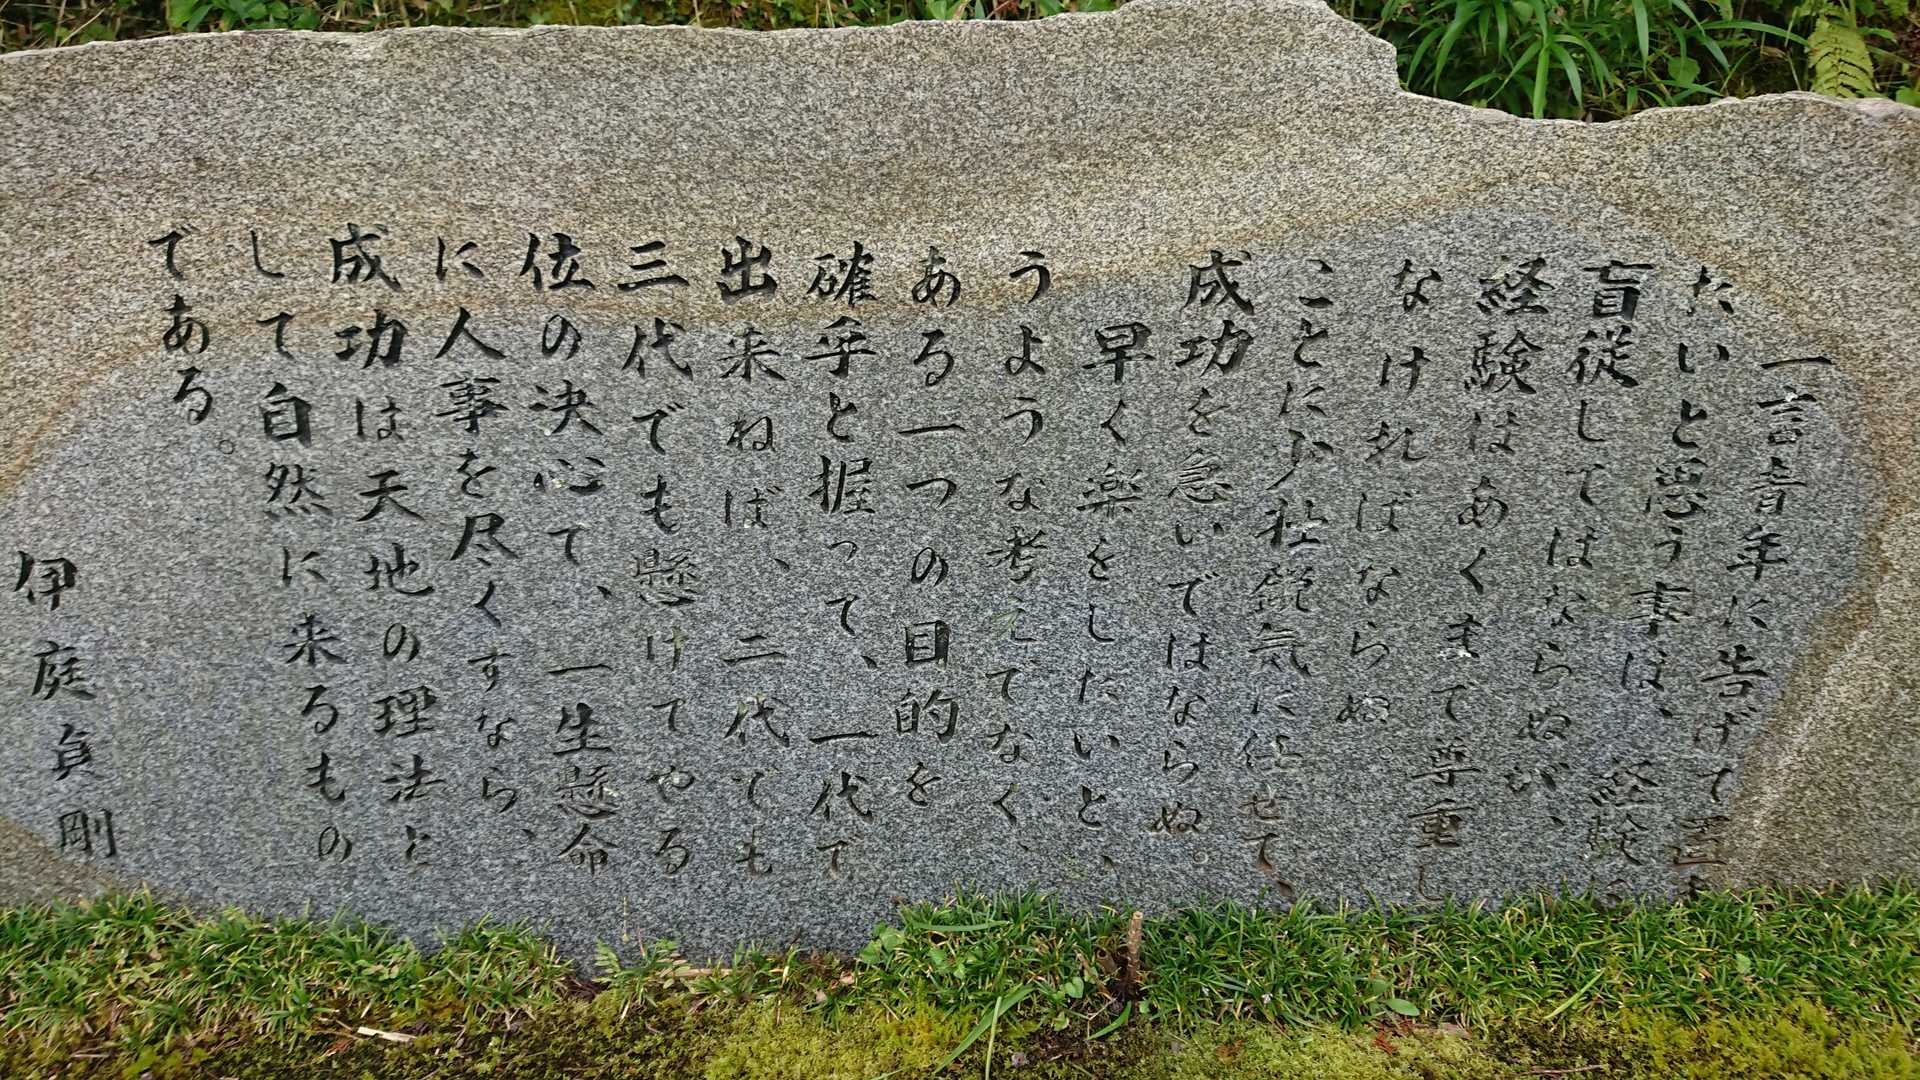 一言青年に告げて置き
たいと思う事は、経験に
盲従してはならぬが、
経験はあくまで尊重し
なければならぬ。
ことに少壮鋭気に任せて、
成功を急いではならぬ。
早く楽をしたいと、
うような考えでなく、
ある一つの目的を
確乎と握って、一代で
出来ねば、二代でも
三代でも懸けてやる
位の決心で、一生懸命
に人事を尽くすなら、
成功は天地の理法と
して自然に来るもの
である。
伊庭貞剛